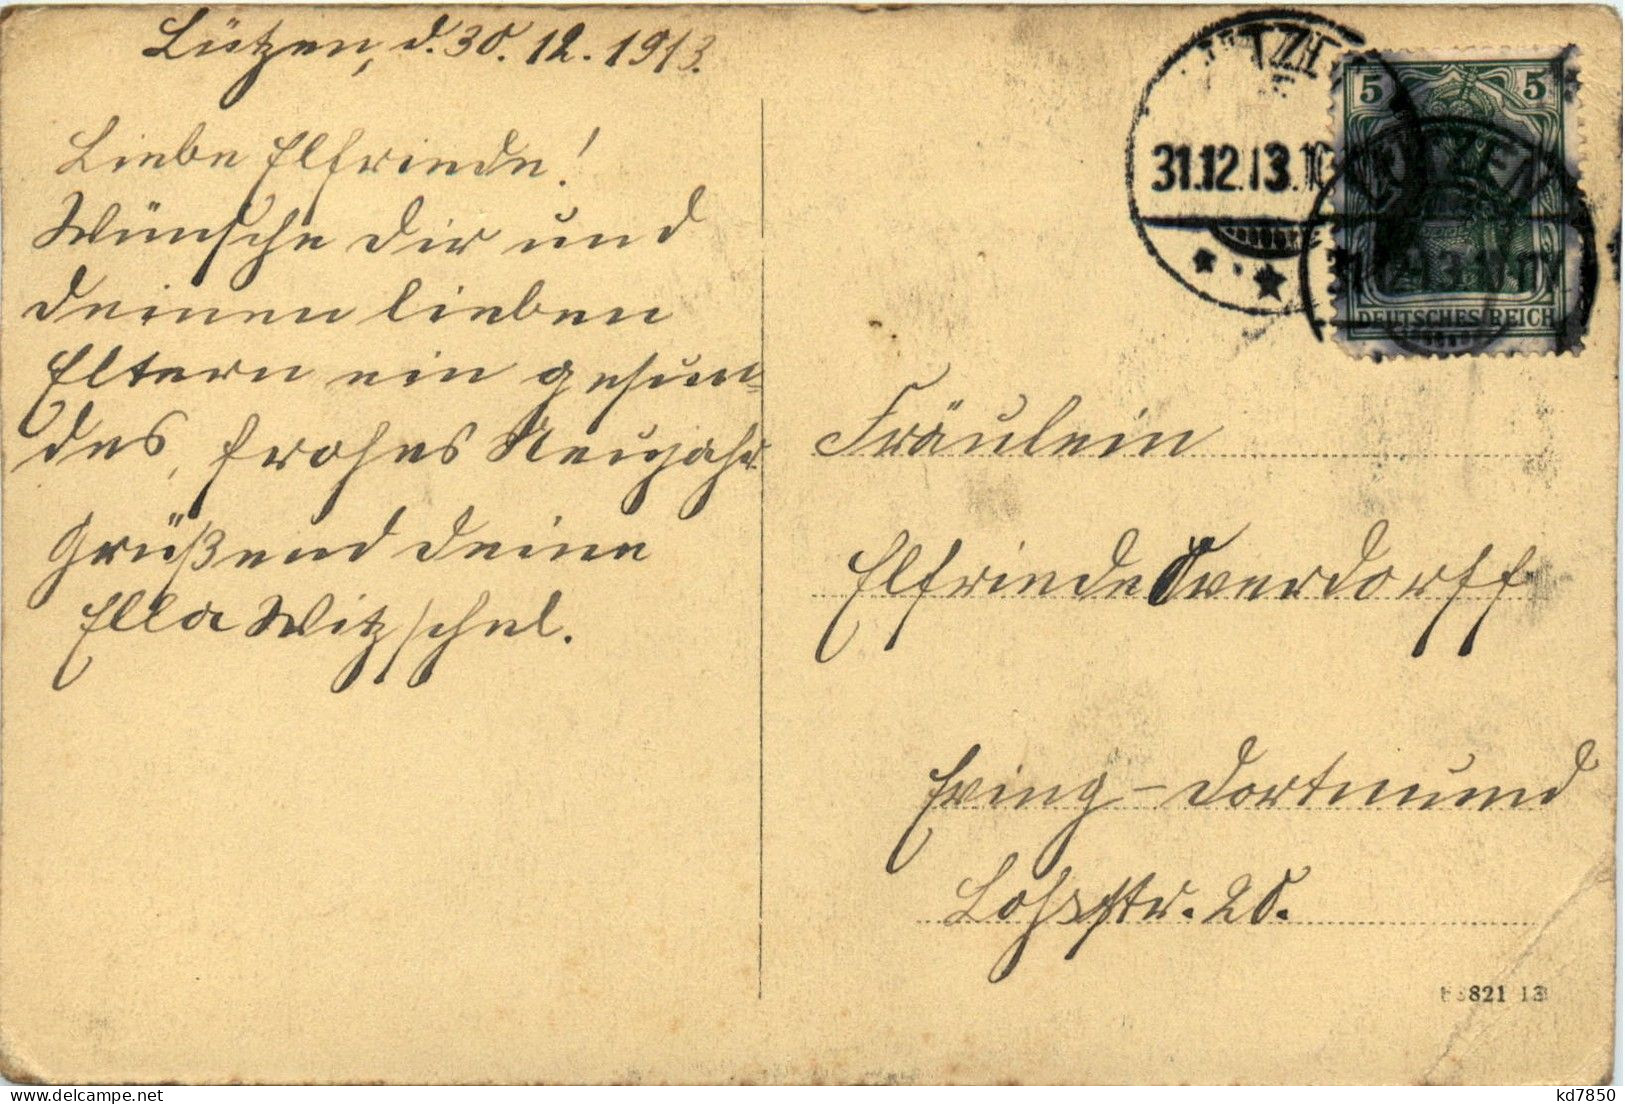 Lützen, d. 30. 12. 1913.
Liebe Elfriede!
Wünsche Dir und
Deinen lieben
Eltern ein gesun-
des, frohes Neujahr
Grüßend Deine
Ella Witzschel.
31.12.13.10
LÜTZEN
31.12.13.
5 5
DEUTSCHES REICH
Fräulein
Elfriede Overdorff
Eving-Dortmund
Lohstr. 20.
821 13
delcampe.net
kd7850